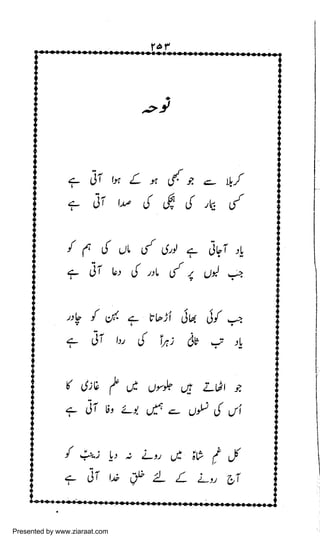 ۲۵۳
نوحہ
کربلا سے جو کبھی ہو کے ہوا آتی ہے
کسی بیمار کی ہچکی کی صدا آتی ہے
یاد آجاتی ہے لوری کسی ماں کی ہم کو
جب لبوں پر کسی مادر کی دعا آتی ہے
جب کوئی بھائی اُڑھاتا ہے بہن کو چادر
یاد تب ثانیٔ زہراؑ کی ردا آتی ہے
جو اٹھاتے ہیں جلوسوں میں علم غازی کا
اُس کی نسلوں سے ہمیں بوئے وفا آتی ہے
کل غمِ شاہؑ میں رونے نہ دیا زینبؑ کو
آج رونے کے لئے خلقِ خدا آتی ہے
Presented by www.ziaraat.com